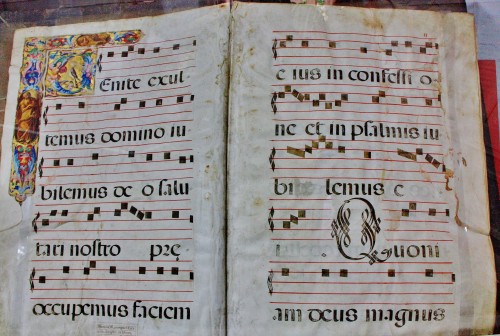 Venite exul
temus domino iu
bilemus de o salu
tari nostro prę
occupemus faciem
e ius in confessi o
ne et in psalmis iu
bi lemus e
Quoni
am deus magnus